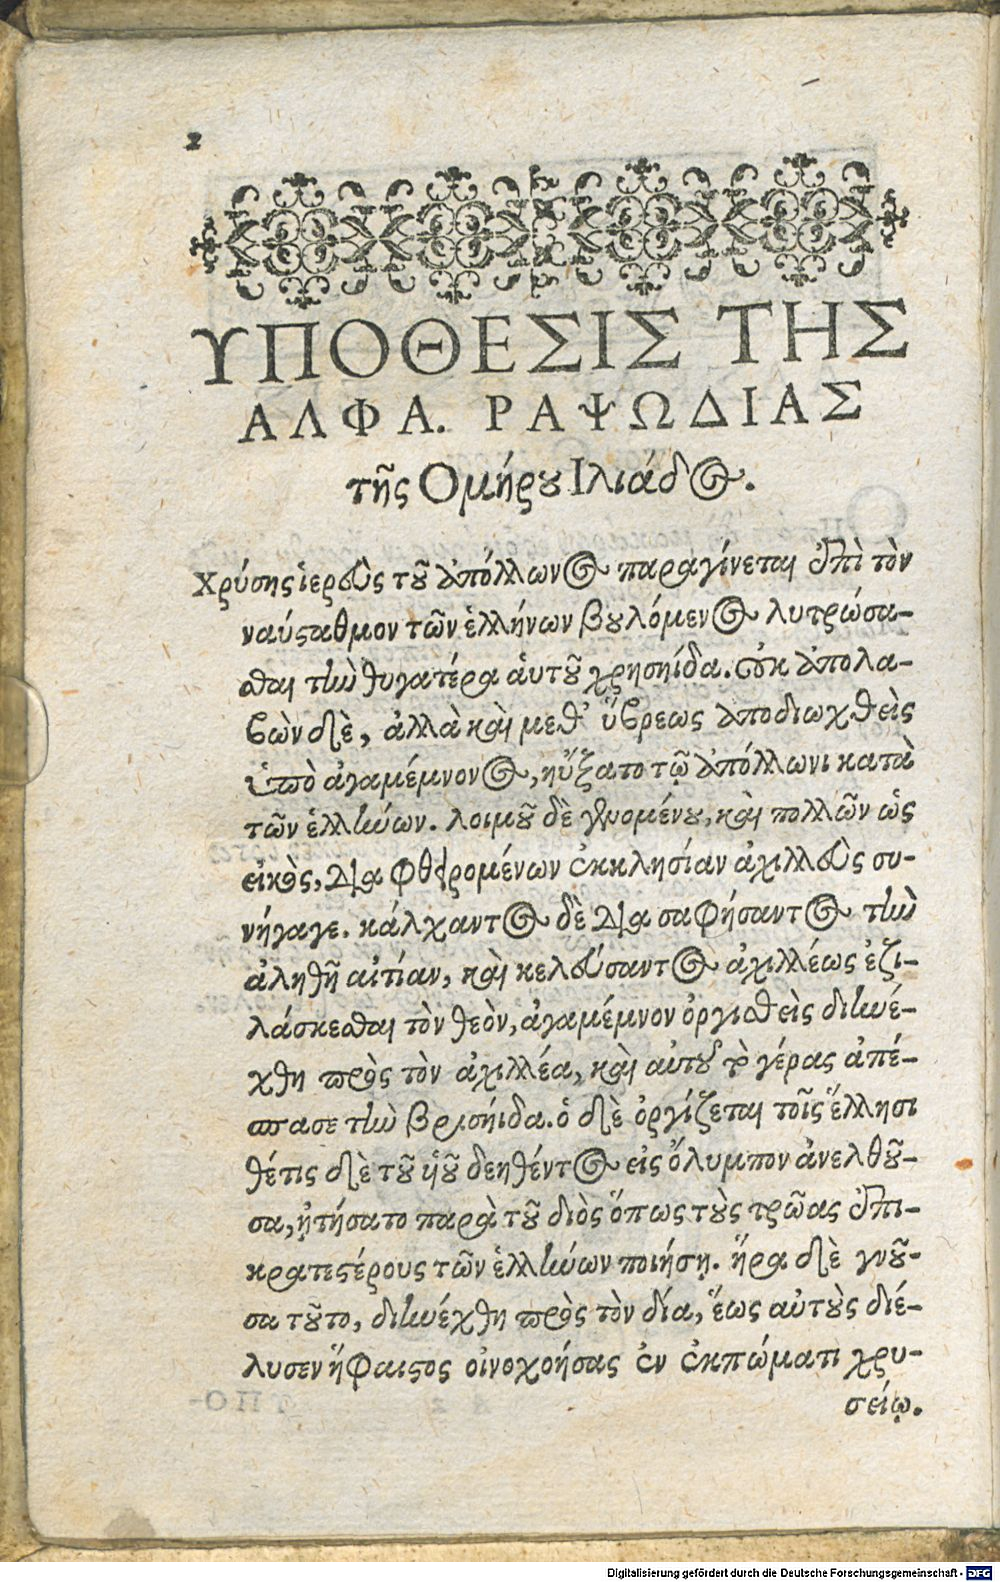 2
ΥΠΟΘΕΣΙΣ ΤΗΣ
ΑΛΦΑ. ΡΑΨΩΔΙΑΣ
τῆς Ομήρου Ιλιάδος.
Χρύσης ἱερεὺς τοῦ ἀπόλλωνος παραγίνεται ἐπὶ τὸν
ναύσαθμον τῶν ἑλλήνων βουλόμενος λυτρώσα-
σθαι τὴν θυγατέρα ἁυτοῦ χρησηίδα. οὐκ ἀπολα-
βὼν δὲ, ἀλλὰ καὶ μεθ' ὕβρεως ἀποδιωχθεὶς
ὑπὸ ἀγαμέμνονος, ηὔξατο τῷ ἀπόλλωνι κατὰ
τῶν ἑλλήνων. λοιμοῦ δὲ γενομένου, καὶ πολλῶν ὡς
εἰκὸς, διαφθειρομένων ἐκκλησίαν ἀχιλλεὺς συ-
νήγαγε. κάλχαντος δὲ διασαφήσαντος τὴν
ἀληθῆ αἰτίαν, καὶ κελεύσαντος ἀχιλλέως ἐξι-
λάσκεσθαι τὸν θεὸν, ἀγαμέμνον ὀργισθεὶς διηνέ-
χθη πρὸς τὸν ἀχιλλέα, καὶ αὐτοῦ τὸ γέρας ἀπέ-
σπασε τὴν βρισήιδα. ὁ δὲ ὀργίζεται τοῖς ἕλλησι
θέτις δὲ τοῦ ὑιοῦ δεηθέντος εἰς ὄλυμπον ἀνελθοῦ-
σα, ᾐτήσατο παρὰ τοῦ διὸς ὅπως τοὺς τρῶας ἐπι-
κρατεστέρους τῶν ἑλλήνων ποιήσῃ. ἥρα δὲ γνοῦ-
σα τοῦτο, διηνέχθη πρὸς τὸν δία, ἕως αὐτοὺς διέ-
λυσεν ἥφαιστος οἰνοχοήσας ἐν ἐκπώματι χρυ-
σείῳ.
Digitalisierung gefördert durch die Deutsche Forschungsgemeinschaft - DFG